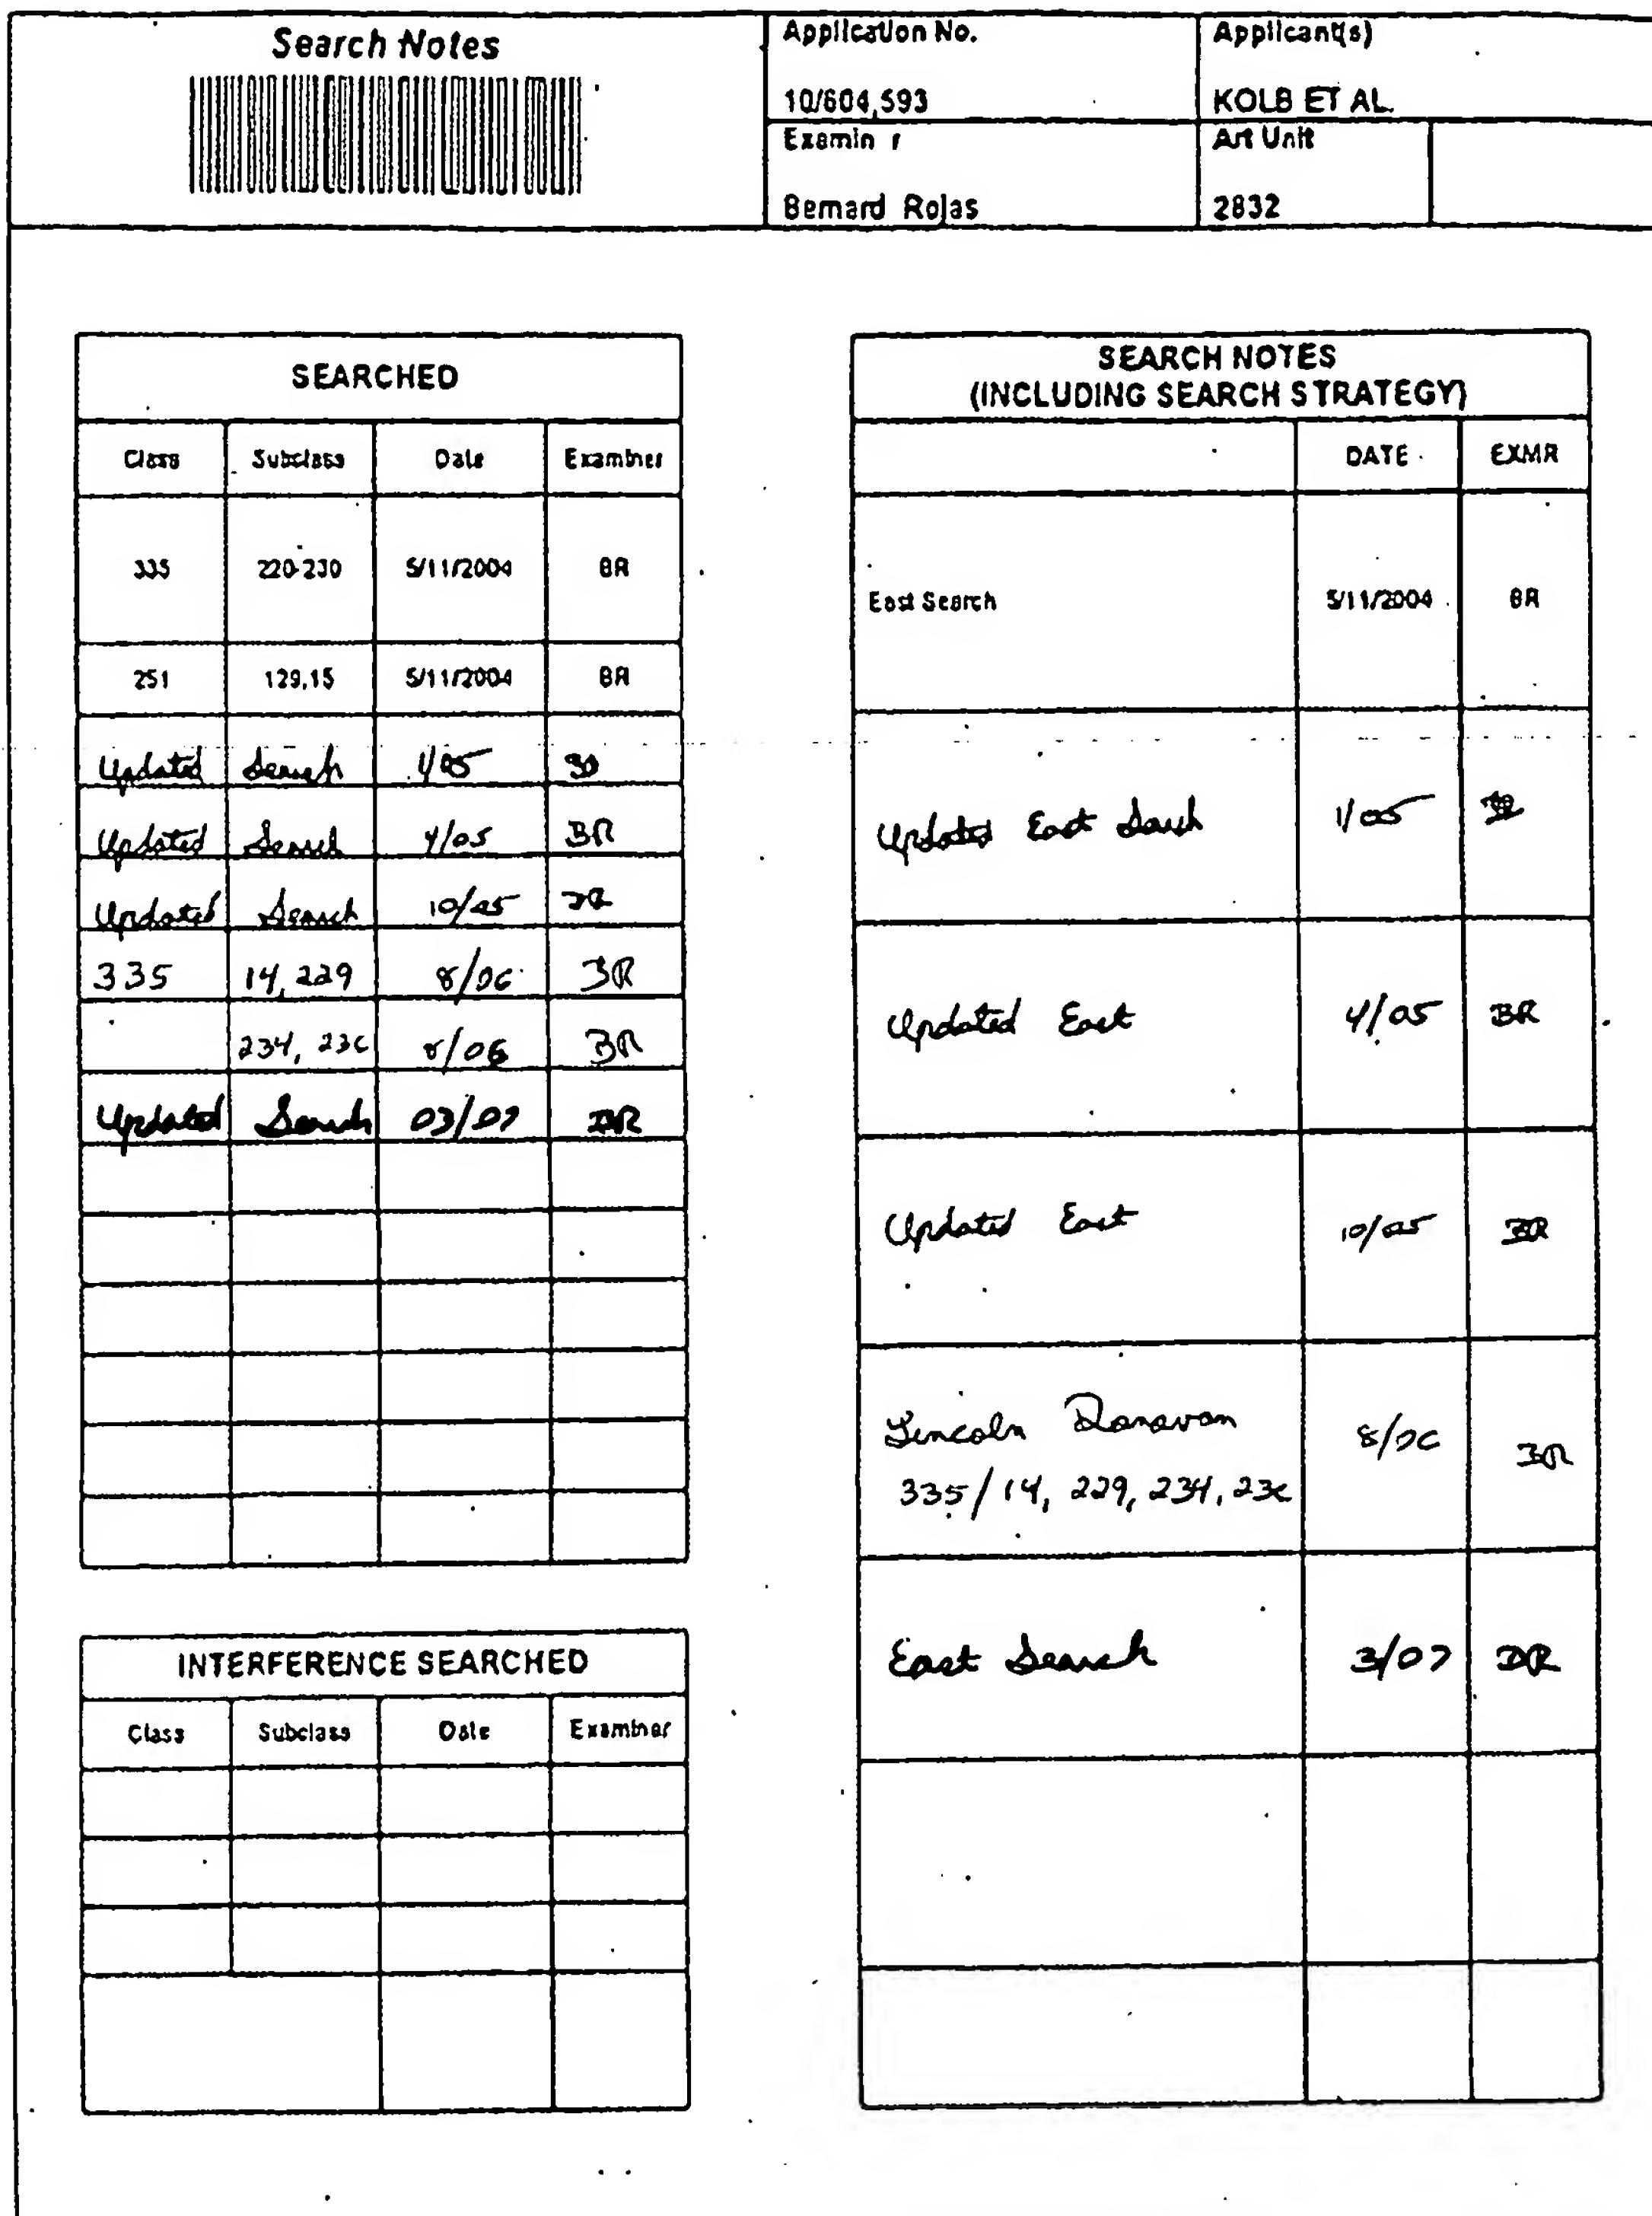 Search Notes
Application No.
10/604,593
Applicant(s)
KOLB ET AL.
Examin r
Bernard Rojas
Art Unit
2832
SEARCHED
Class Subclass Date Examiner
335 220-230 5/11/2004 BR
251 129,15 5/11/2004 BR
Updated Search 1/05
Updated Search 4/05 BR
Updated Search 10/05 BR
335 14, 229 8/06 BR
234, 236 8/06 BR
Updated Search 03/07 BR
INTERFERENCE SEARCHED
Class Subclass Date Examiner
SEARCH NOTES
(INCLUDING SEARCH STRATEGY)
DATE EXMR
East Search 5/11/2004 BR
Updated East Search 1/05
Updated East 4/05 BR
Updated East 10/05 BR
Lincoln Donovan 8/06 BR
335/14, 229, 234, 236
East Search 3/07 BR